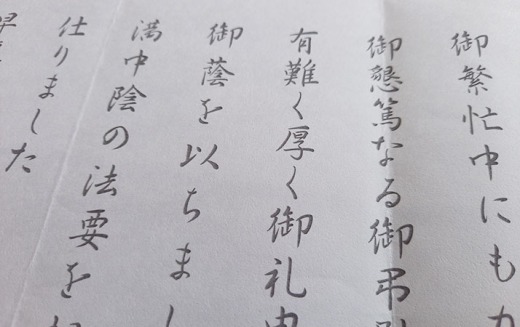 御繁忙中にも
御懇篤なる御弔
有難く厚く御礼申
御蔭を以ちまし
満中陰の法要を
仕りました
早